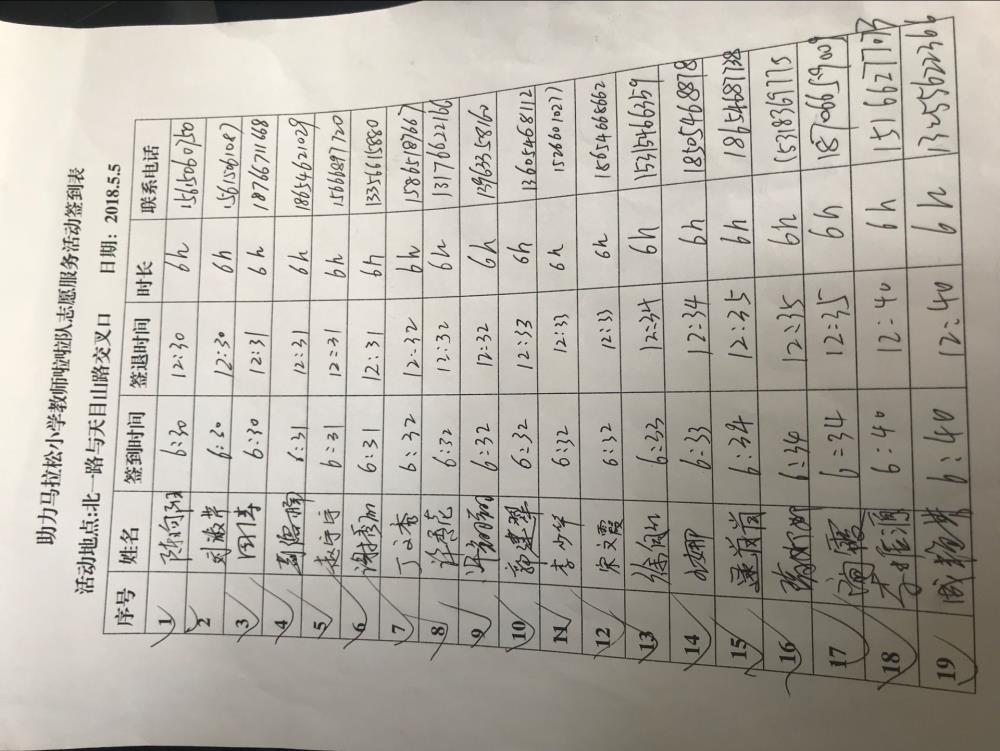 助力马拉松小学教师啦啦队志愿服务活动签到表
活动地点:北一路与天目山路交叉口 日期：2018.5.5
序号 姓名 签到时间 签退时间 时长 联系电话
1 6:30 12:30 6h 15615060750
2 6:30 12:30 6h
3 周军 6:30 12:31 6h 18766711668
4 6:31 12:31 6h 18654621029
5 赵守宁 6:31 12:31 6h 15666897720
6 6:31 12:31 6h 13356615880
7 丁文秀 6:32 12:32 6h 15865187667
8 6:32 12:32 6h 13176622166
9 6:32 12:32 6h 13963358162
10 郭建翠 6:32 12:33 6h 13605468112
11 李少华 6:32 12:33 6h 15266010277
12 宋文霞 6:32 12:33 6h 18654668662
13 6:33 12:34 6h 15315466359
14 6:33 12:34 6h 18505468878
15 6:34 12:35 6h 18654687738
16 6:34 12:35 6h 15318369775
17 6:34 12:35 6h 18706665900
18 6:40 12:40 6h 15166277073
19 6:40 12:40 6h 13255622366